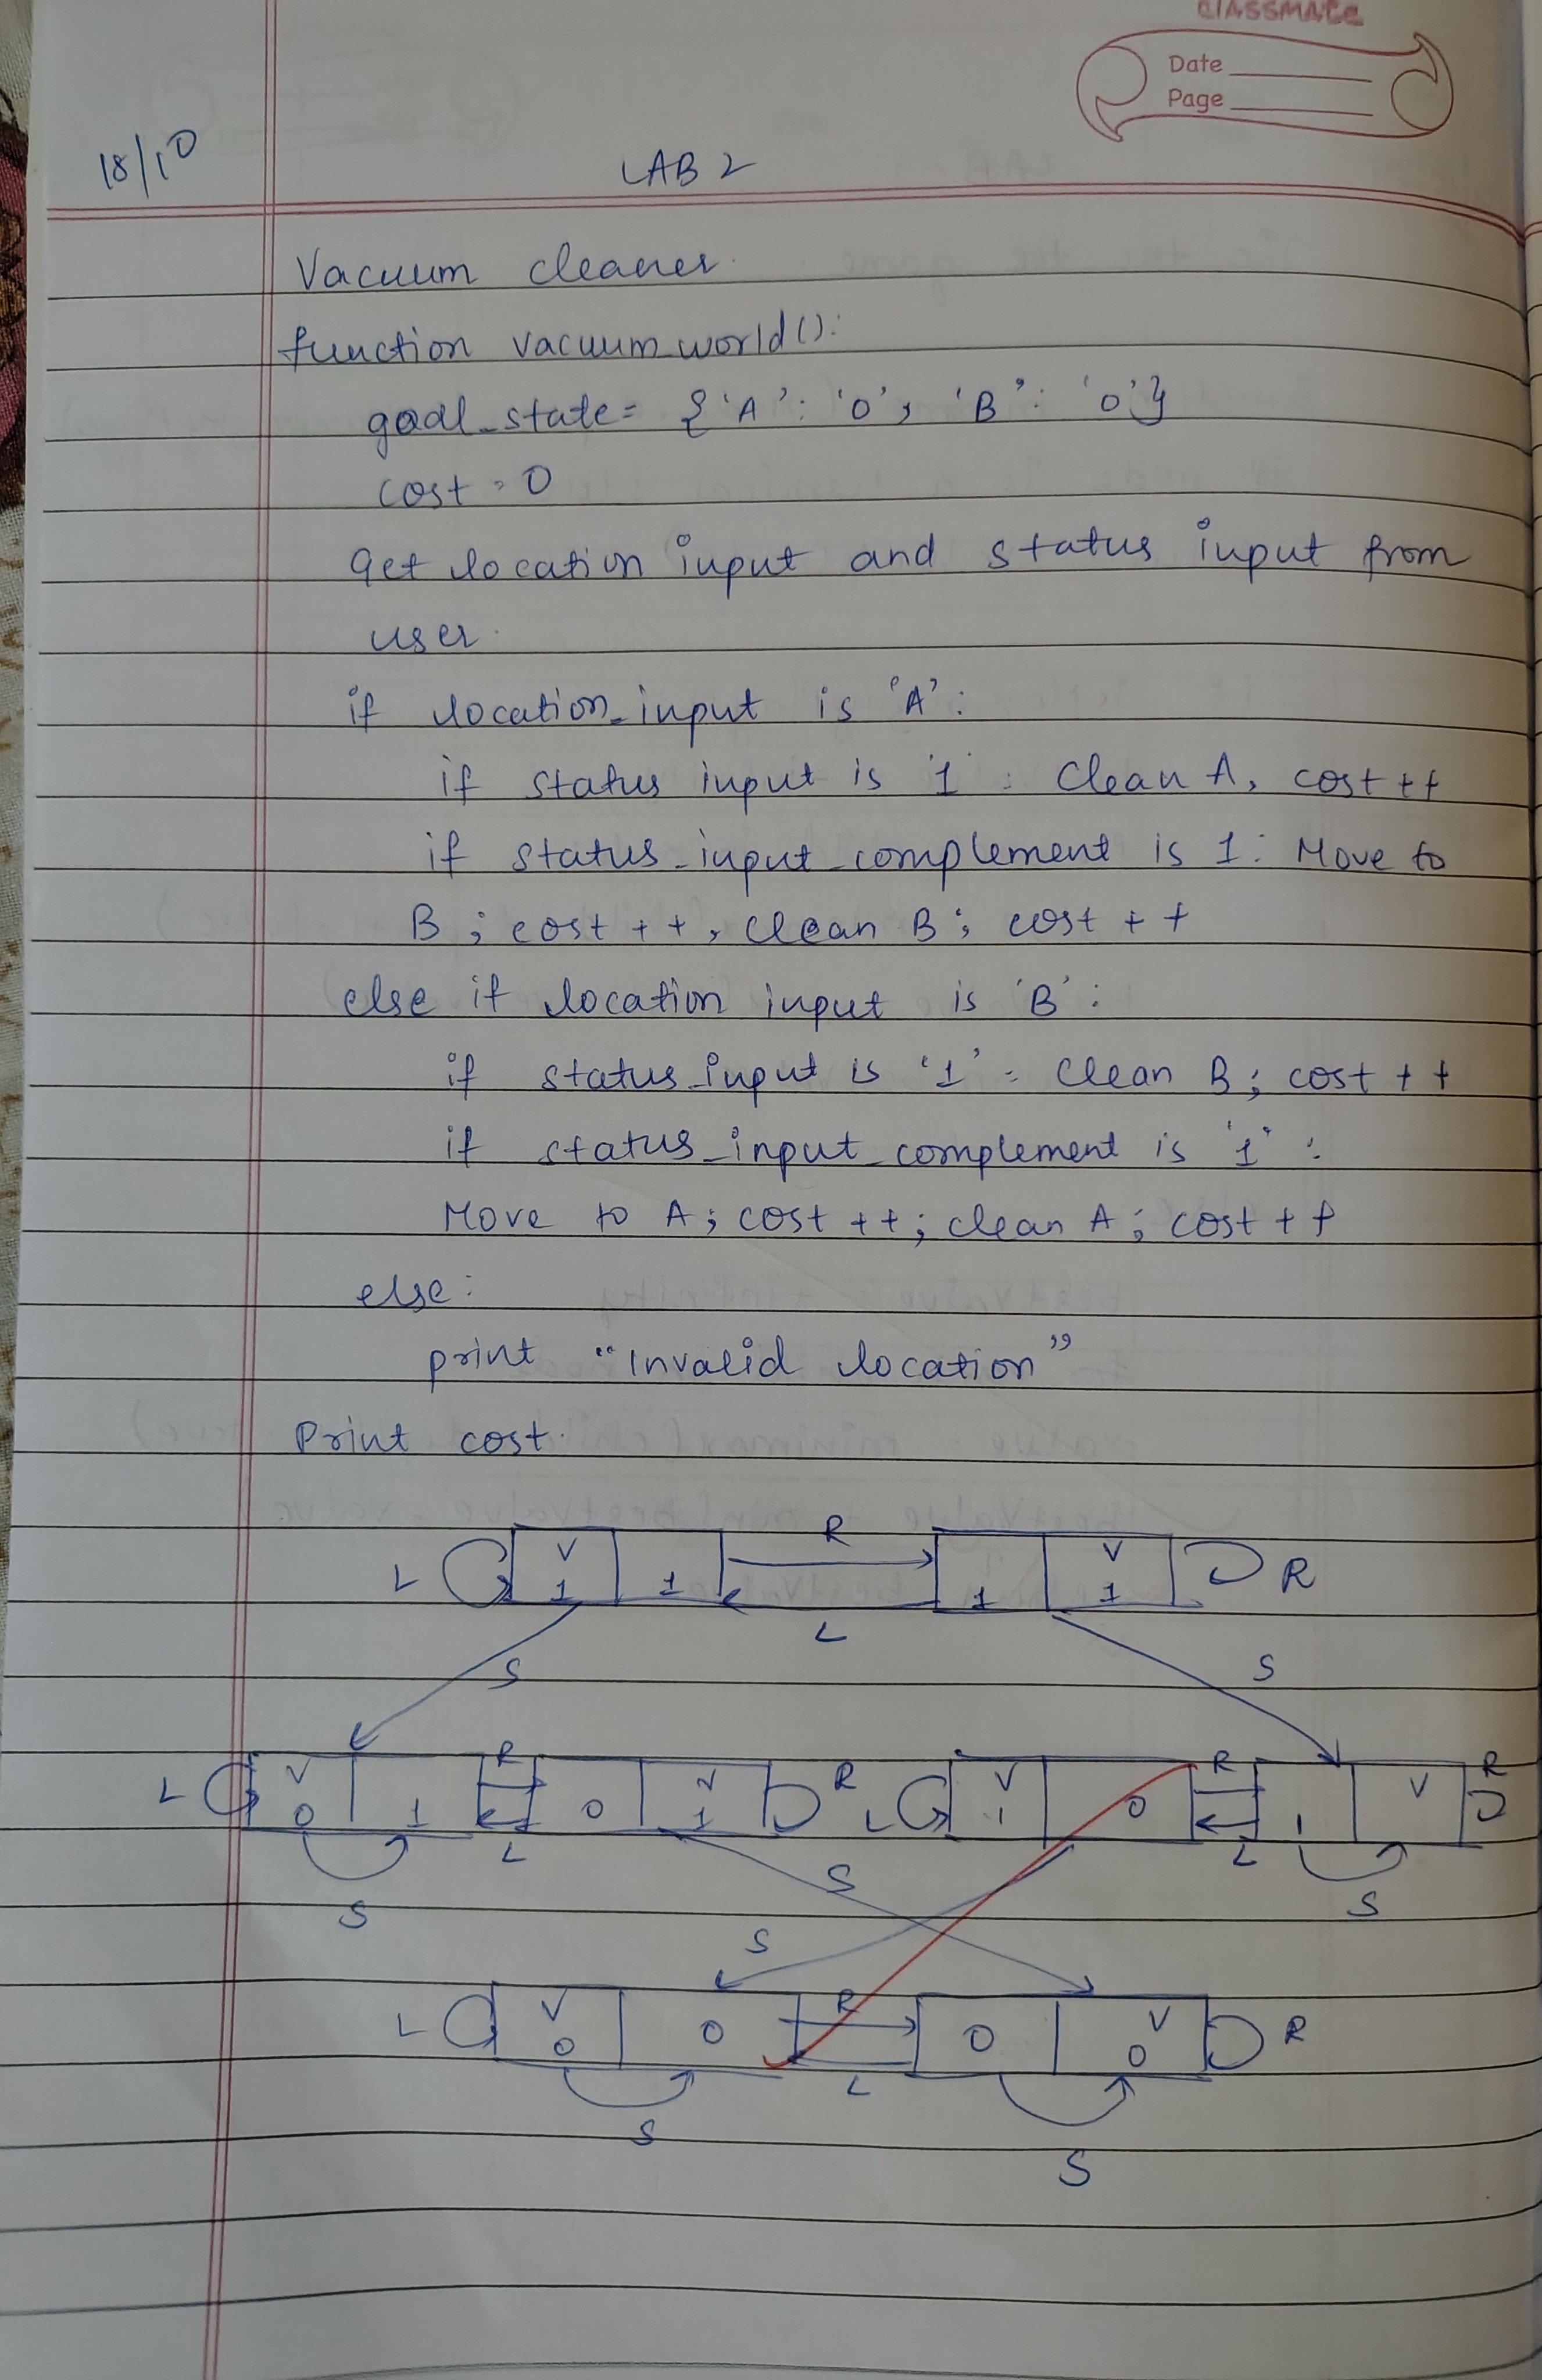 classmate
Date
Page
18/10
LAB 2
Vacuum cleaner.
function vacuum_world():
goal_state = {'A': '0', 'B': '0'}
cost = 0
get location input and status input from
user.
if location_input is 'A':
if status input is '1': Clean A, cost ++
if status_input_complement is 1: Move to
B; cost ++, clean B; cost ++
else if location input is 'B':
if status_input is '1': clean B; cost ++
if status_input_complement is '1':
Move to A; cost ++; clean A; cost ++
else:
print "Invalid location"
Print cost.
R
L V V R
1 1 1 1
L
S S
R R R
L V V R L V V
0 1 0 1 1 0 1
L L
S S S
S
R
L V 0 0 V R
0 0
L
S
S